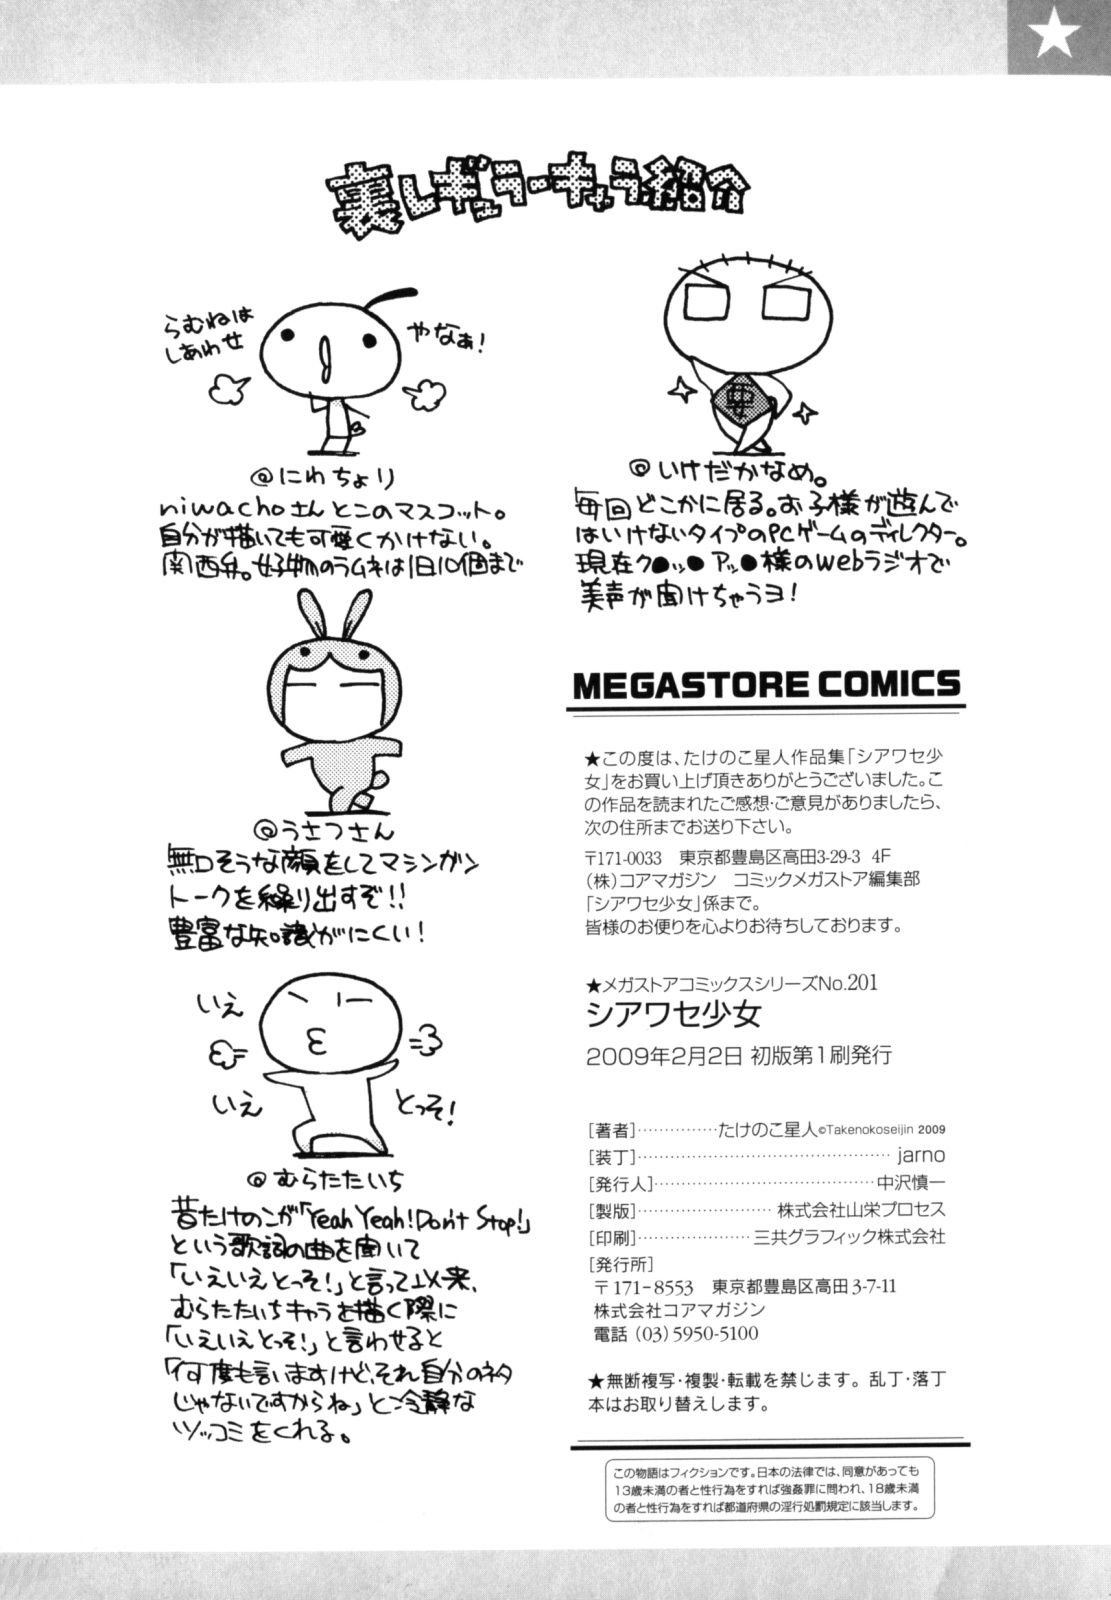 裏レギュラーキャラ紹介
らむねは
しあわせ
やなぁ!
@にわちょり
niwachoさんとこのマスコット。
自分が描いても可愛くかけない。
関西弁。好物のラムネは1日10個まで
@うさつさん
無口そうな顔をしてマシンガン
トークを繰り出すぞ!!
豊富な知識がにくい!
いえ
いえ
とっそ!
@むらたたいち
昔たけのこが「Yeah Yeah!Don't Stop!」
という歌詞の曲を聞いて
「いえいえとっそ!」と言って以来、
むらたたいちキャラを描く際に
「いえいえとっそ!」と言わせると
「何度も言いますけど、それ自分のネタ
じゃないですからね」と冷静な
ツッコミをくれる。
要
@いけだかなめ。
毎回どこかに居る。お子様が遊んで
はいけないタイプのPCゲームのディレクター。
現在ク●ッ● アッ●様のwebラジオで
美声が聞けちゃうヨ!
MEGASTORE COMICS
★この度は、たけのこ星人作品集「シアワセ少
女」をお買い上げ頂きありがとうございました。こ
の作品を読まれたご感想・ご意見がありましたら、
次の住所までお送り下さい。
〒171-0033 東京都豊島区高田3-29-3 4F
(株)コアマガジン コミックメガストア編集部
「シアワセ少女」係まで。
皆様のお便りを心よりお待ちしております。
★メガストアコミックスシリーズNo.201
シアワセ少女
2009年2月2日 初版第1刷発行
[著者]··············たけのこ星人©Takenokoseijin 2009
[装丁]··············································jarno
[発行人]········································中沢慎一
[製版]························株式会社山栄プロセス
[印刷]····················三共グラフィック株式会社
[発行所]
〒171-8553 東京都豊島区高田3-7-11
株式会社コアマガジン
電話(03)5950-5100
★無断複写・複製・転載を禁じます。乱丁・落丁
本はお取り替えします。
この物語はフィクションです。日本の法律では、同意があっても
13歳未満の者と性行為をすれば強姦罪に問われ、18歳未満
の者と性行為をすれば都道府県の淫行処罰規定に該当します。